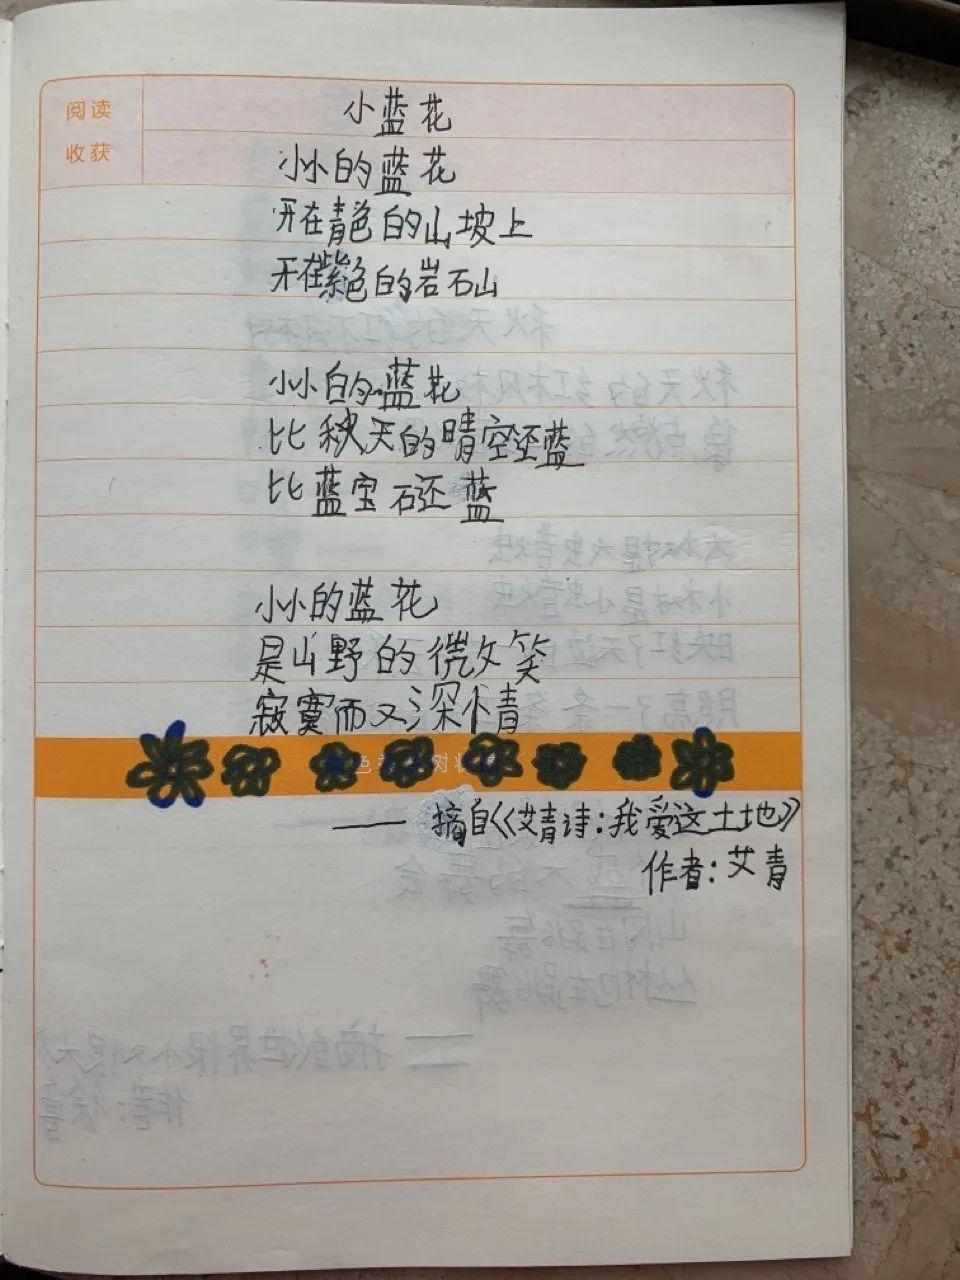 阅读
收获
小蓝花
小小的蓝花
开在青色的山坡上
开在紫色的岩石山
小小的蓝花
比秋天的晴空还蓝
比蓝宝石还蓝
小小的蓝花
是山野的微笑
寂寞而又深情
——摘自《艾青诗:我爱这土地》
作者:艾青